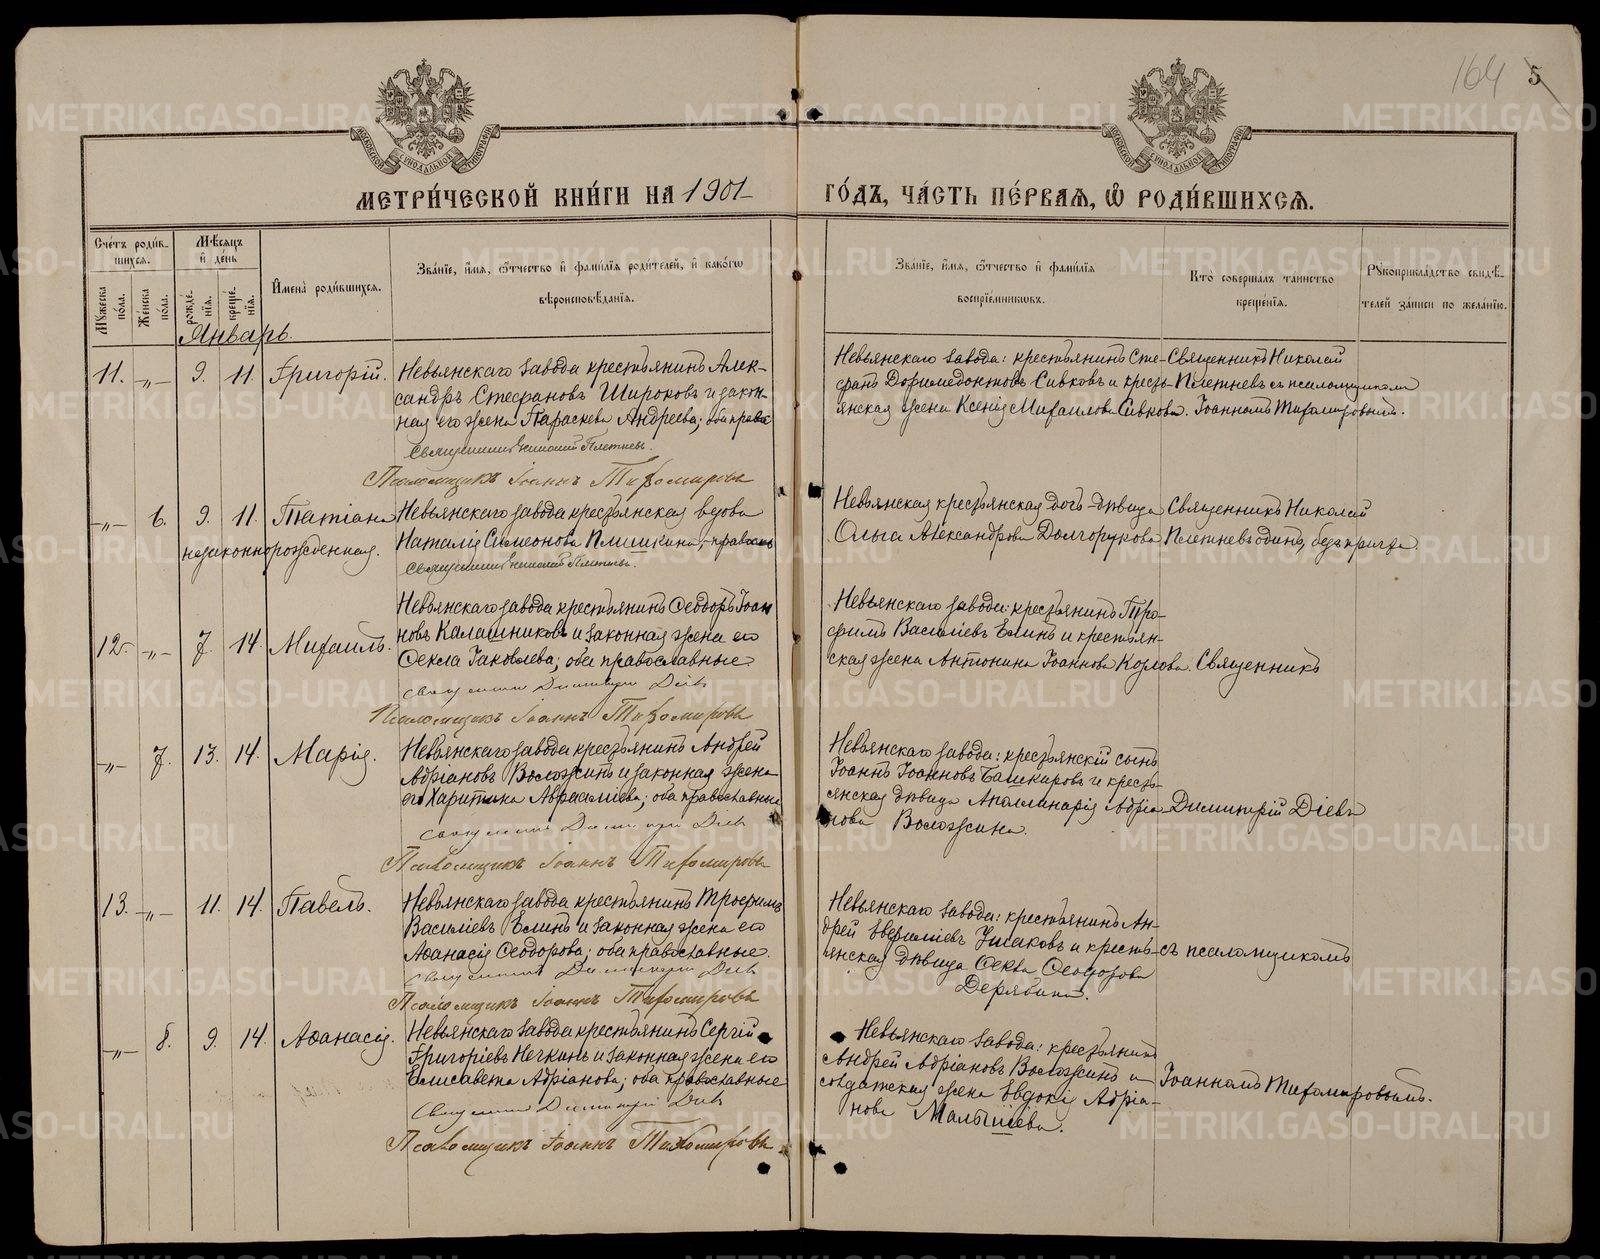 164 5
МЕТРИ́ЧЕСКОЙ КНИ́ГИ НА 1901
ГО́ДЪ, ЧА́СТЬ ПЕ́РВАѦ, Ѡ҆ РОДИ́ВШИХСѦ.
Сче́тъ роди́в-
шихсѧ.
Мꙋ́жеска по́ла.
Же́нска по́ла.
Мѣ́сѧцъ и҆ де́нь
рожде́-нїѧ.
креще́-нїѧ.
И҆мена̀ роди́вшихсѧ.
Зва́нїе, и҆́мѧ, ѻ҆́тчество и҆ фами́лїѧ роди́телей, и҆ како́гѡ
вѣроисповѣ́данїѧ.
Зва́нїе, и҆́мѧ, ѻ҆́тчество и҆ фами́лїѧ
воспрїе́мникѡвъ.
Кто̀ соверша́лъ та́инство
креще́нїѧ.
Рꙋкоприкла́дство свидѣ́-
телей за́писи по жела́нїю.
Январь.
11. -„- 9. 11. Григорій.
Невьянскаго завода крестьянинъ Алек-
сандръ Стефановъ Широковъ и закон-
ная его жена Параскева Андреева; оба правос
Священникъ Николай Плетневъ.
Псаломщикъ Іоаннъ Тихомировъ
Невьянскаго завода: крестьянинъ Сте-
фанъ Доримедонтовъ Сивковъ и кресть-
янская жена Ксенія Михаилова Сивкова.
Священникъ Николай
Плетневъ съ псаломщикомъ
Іоанномъ Тихомировымъ.
-„- 6. 9. 11. Татіана
незаконнорожденная.
Невьянскаго завода крестьянская вдова
Наталія Симеонова Плишкина, правосл
Священникъ Николай Плетневъ.
Невьянская крестьянская дочь-дѣвица
Ольга Александрова Долгорукова
Священникъ Николай
Плетневъ одинъ, безъ причта.
12. -„- 7. 14. Михаилъ.
Невьянскаго завода крестьянинъ Ѳеодоръ Іоан
новъ Калашниковъ и законная жена его
Ѳекла Іаковлева; оба православные
священникъ Димитрій Діевъ
Псаломщикъ Іоаннъ Тихомировъ
Невьянскаго завода: крестьянинъ Тро-
фимъ Василіевъ Елинъ и крестьян-
ская жена Антонина Іоаннова Козлова.
Священникъ
-„- 7. 13. 14. Марія.
Невьянскаго завода крестьянинъ Андрей
Адріановъ Воложинъ и законная жена
его Харитина Авраамиева; оба православные
священникъ Димитрій Діевъ
Псаломщикъ Іоаннъ Тихомировъ
Невьянскаго завода: крестьянскій сынъ
Іоаннъ Іоанновъ Башкировъ и кресть-
янская дѣвица Аполлинарія Адріа-
нова Воложина.
Димитрій Діевъ
13. -„- 11. 14. Павелъ.
Невьянскаго завода крестьянинъ Трофимъ
Василіевъ Елинъ и законная жена его
Аѳанасія Ѳеодорова; оба православные.
священникъ Димитрій Діевъ
Псаломщикъ Іоаннъ Тихомировъ
Невьянскаго завода: крестьянинъ Ан-
дрей Ушаковъ и кресть-
янская дѣвица Ѳекла Ѳеодорова
Дерябина.
съ псаломщикомъ
-„- 8. 9. 14. Аѳанасія.
Невьянскаго завода крестьянинъ Сергій
Григоріевъ Нечкинъ и законная жена его
Елисавета Адріанова; оба православные
священникъ Димитрій Діевъ
Псаломщикъ Іоаннъ Тихомировъ
Невьянскаго завода: крестьянинъ
Андрей Адріановъ Воложинъ и
солдатская жена Евдокія Адріа-
нова Малышева.
Іоанномъ Тихомировымъ.
METRIKI.GASO-URAL.RU